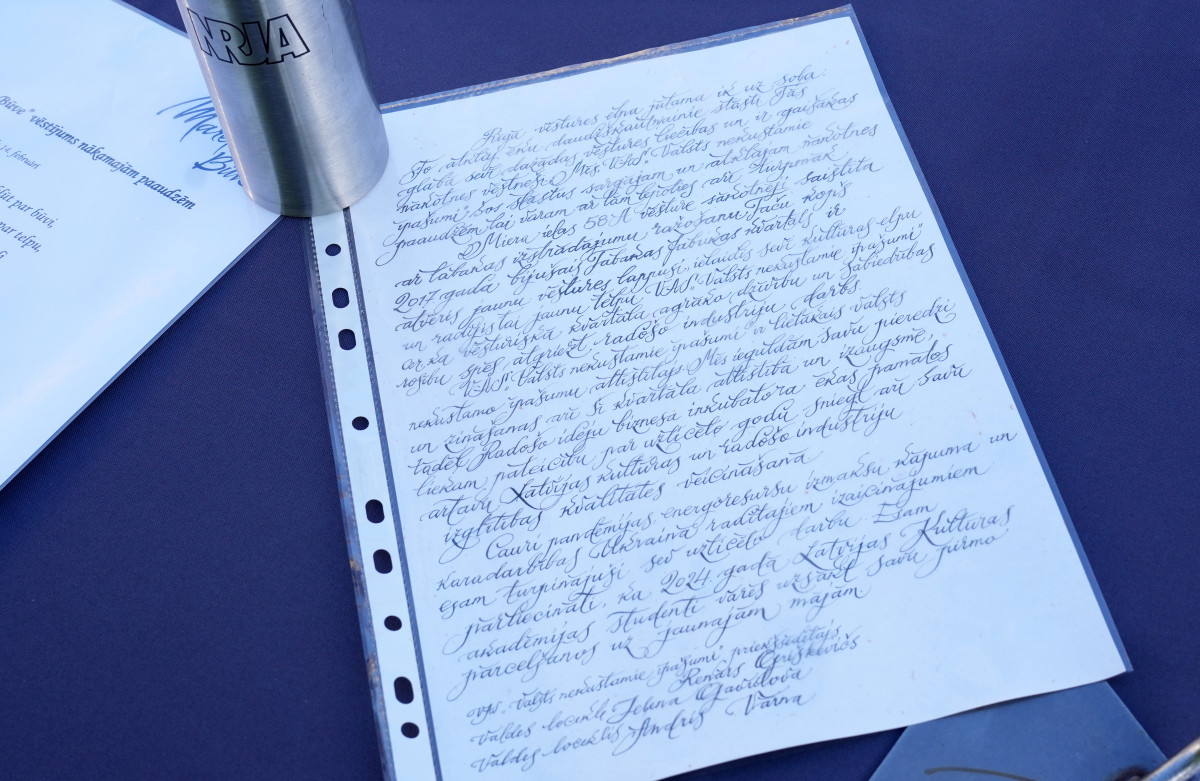 NRJA
Būve" vēstījums nākamajām paaudzēm
14. februārī
par būvi,
par telpu,
Rīgā vēstures elpa jūtama ik uz soļa.
To atklāj ēku daudzskaitļuimie stāsti. Tās
glabā sevī dažādas vēstures liecības un ir gaišākas
nākotnes vēstneši. Mēs, VAS "Valsts nekustamie
īpašumi", šos stāstus sargājam un atklājam nākotnes
paaudzēm, lai varam ar tām lepoties arī turpmāk.
Mieru ielas 58A vēsture sākotnēji saistīta
ar tabakas izstrādājumu ražošanu. Taču kopš
2017. gada bijušais Tabakas fabrikas kvartāls ir
atvēris jaunu vēstures lappusi, ielaides sevī kultūras elpu
un radījis tai jaunu telpu. VAS "Valsts nekustamie īpašumi"
ar ka vēsturiskā kvartāla agrāko dzīvību un sabiedrības
rosību spēs atgriezt radošo industriju darbs.
VAS "Valsts nekustamie īpašumi" ir lielākais valsts
nekustamo īpašumu attīstītājs. Mēs ieguldām savu pieredzi
un zināšanas arī šī kvartāla attīstībā un izaugsmē,
tādēļ Radošo ideju biznesa inkubatora ēkas pamatos
liekam pateicību par uzticēto godu sniegt arī savu
artavu Latvijas kultūras un radošo industriju
izglītības kvalitātes veicināšanā.
Cauri pandēmijas, energoresursu izmaksu kāpuma un
karadarbības Ukrainā radītajiem izaicinājumiem
esam turpinājuši sev uzticēto darbu. Esam
pārliecināti, ka 2024. gadā Latvijas Kultūras
akadēmijas studenti varēs uzsākt savu pirmo
pārcelšanos uz jaunajām mājām.
VAS "Valsts nekustamie īpašumi" priekšsēdētājs
Renārs Griškevičs
Valdes locekle Jeļena Gavrilova
Valdes loceklis Andris Vārna